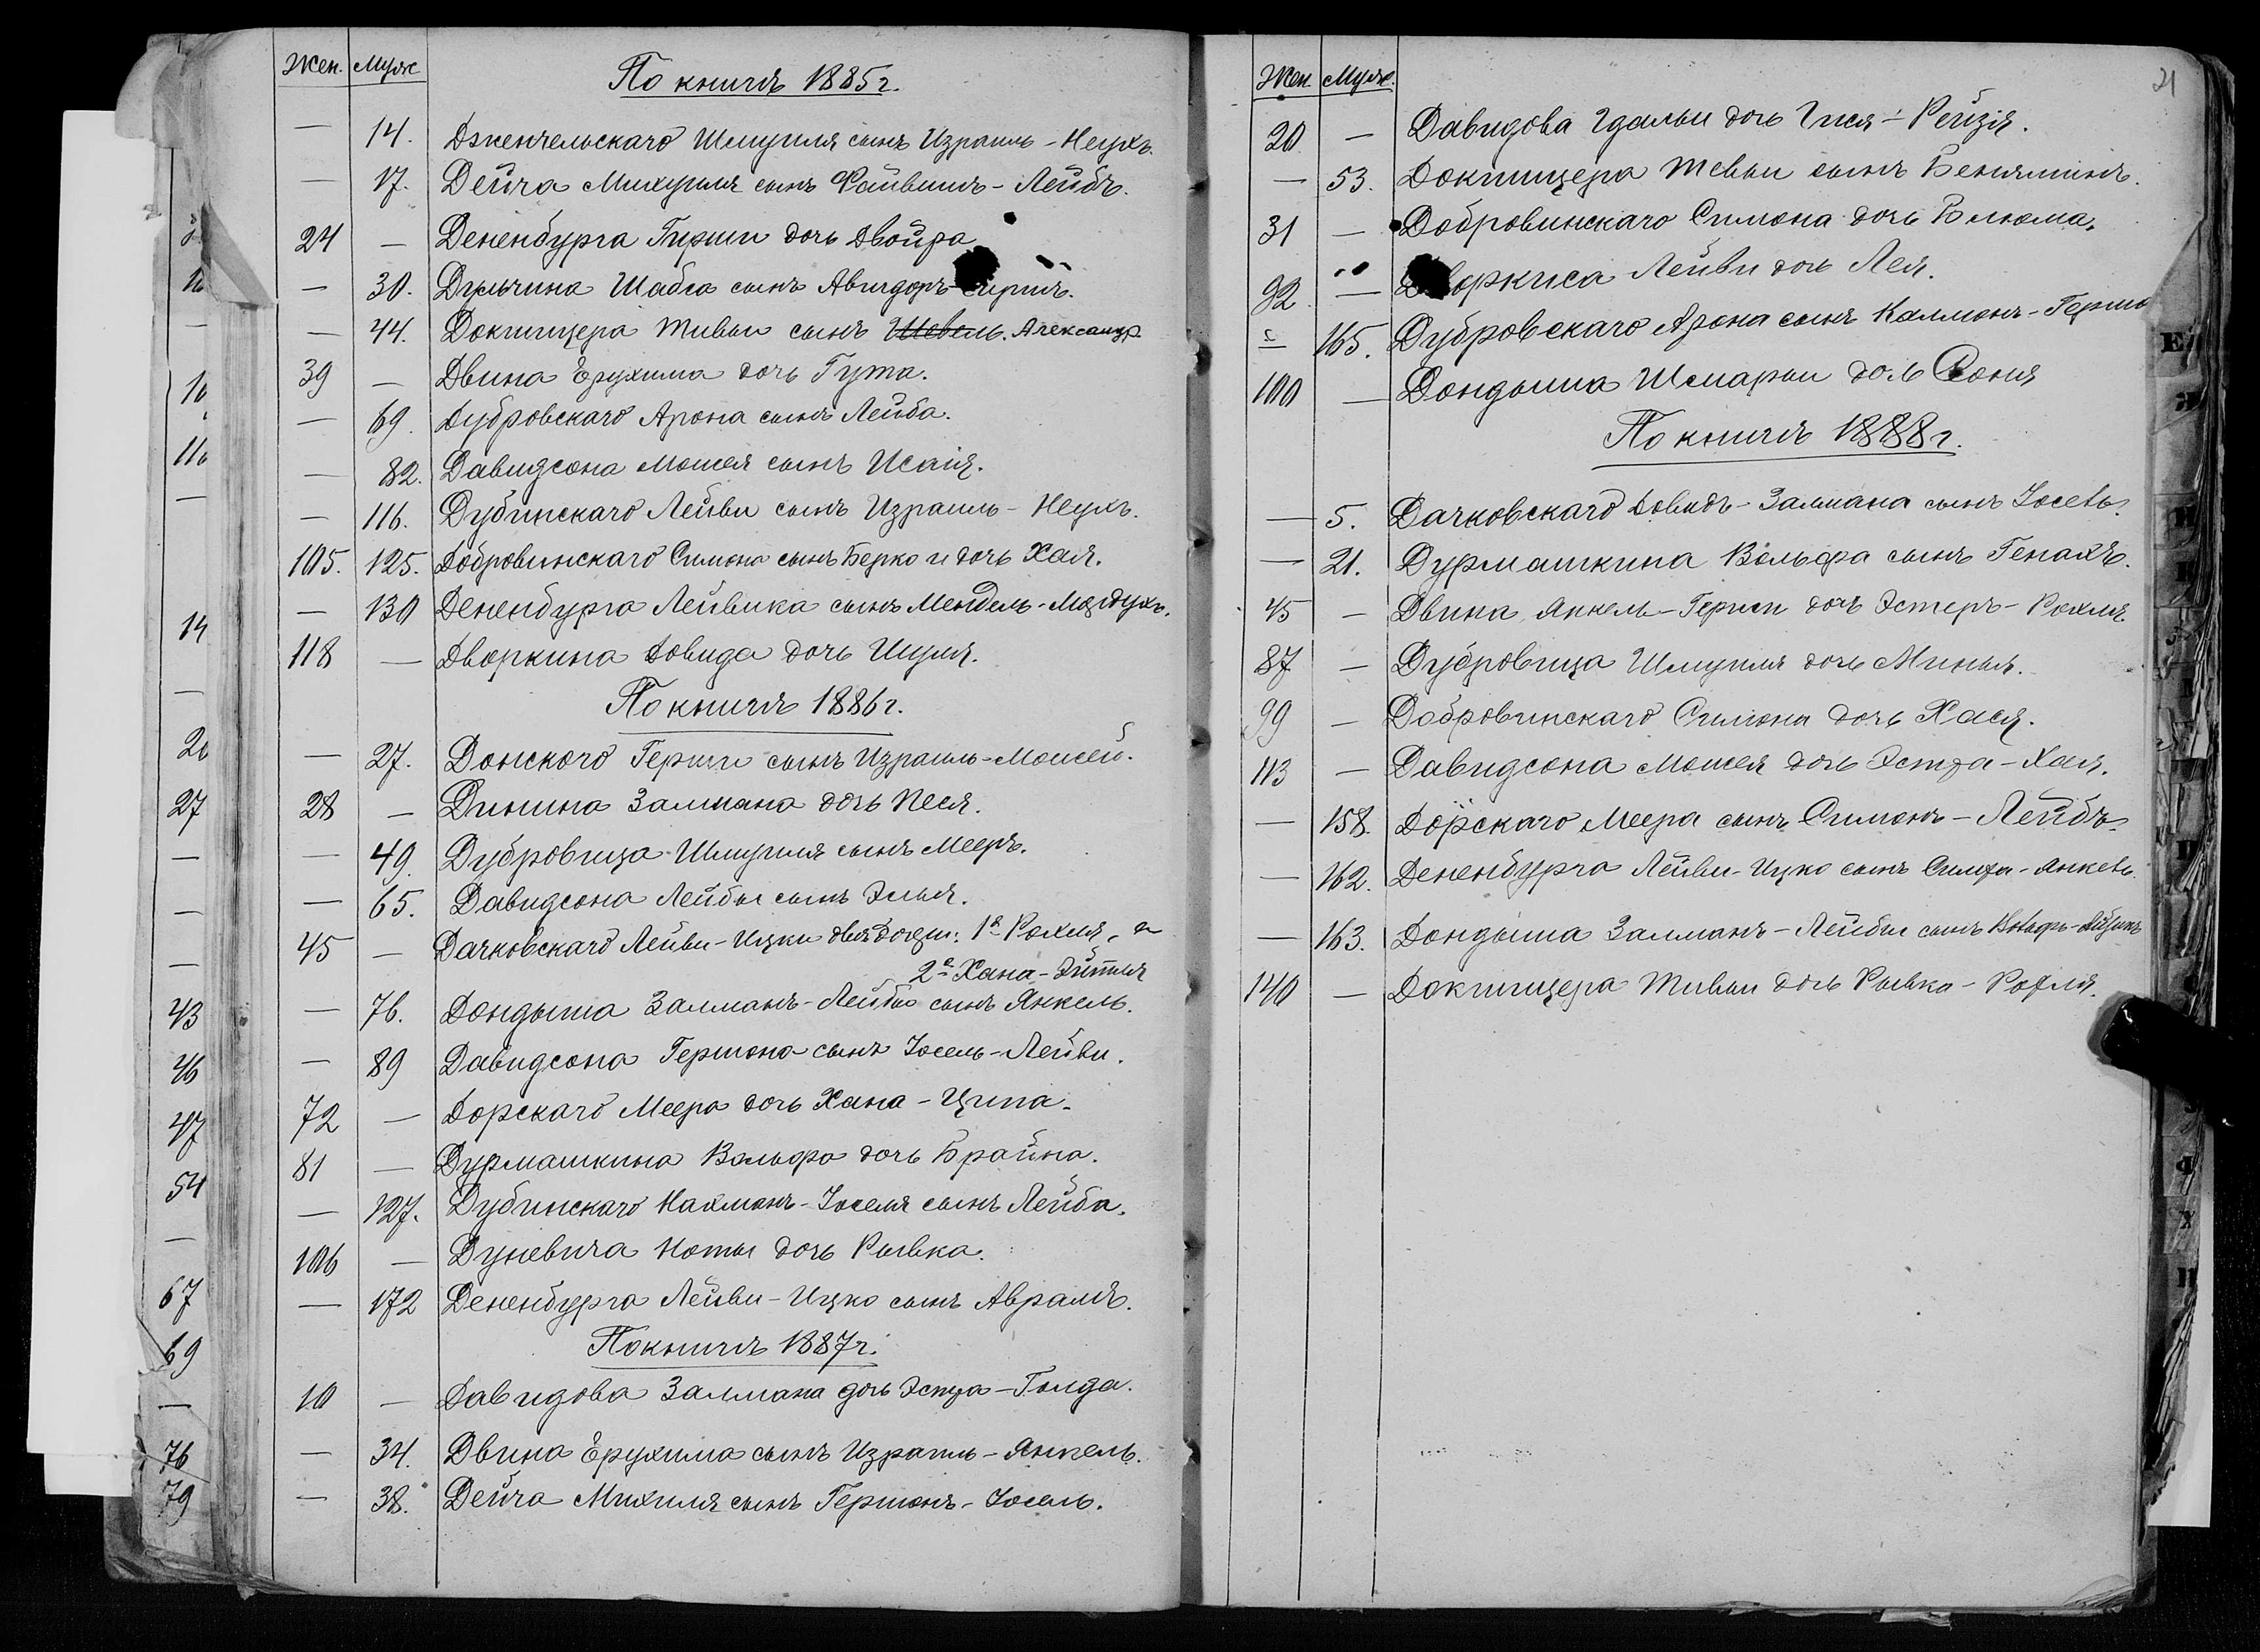 Жен. Муж
По книгѣ 1885 г.
— 14. Дженчельскаго Шмуиля сынъ Израиль-Неухъ.
— 17. Дейча Михуиля сынъ Файвишъ-Лейбъ.
24 — Дененбурга Гирши дочь Двойра
— 30. Дульчина Шабса сынъ Авигдоръ-
— 44. Докшицера Тивьи сынъ Шевель. Александр
39 — Двина Ерухима дочь Гута.
— 69. Дубровскаго Арона сынъ Лейба.
— 82. Давидсона Мошея сынъ Исаія.
— 116. Дубинскаго Лейви сынъ Израиль-Неухъ.
105. 125. Добровинскаго Симона сынъ Берко и дочь Хая.
— 130 Дененбурга Лейвика сынъ Мендель-
118 — Дворкина Довида дочь
По книгѣ 1886 г.
— 27. Донского Герши сынъ Израиль-Мошей.
28 — Динина Залмана дочь Песя.
— 49. Дубровица Шмуиля сынъ Мееръ.
— 65. Давидсона Лейбы сынъ Элья.
45 — Дачковскаго Лейви-Ицки двѣ дочери: 1я Рохля, а
2я Хана-
— 76. Дондыша Залманъ-Лейбы сынъ Янкель.
— 89 Давидсона Гершона сынъ Іосель-Лейви.
72 — Дорскаго Меера дочь Хана-Ципа.
81 — Дурмашкина Вольфа дочь Брайна.
— 127. Дубинскаго Нахманъ-Іоселя сынъ Лейба.
106 — Дуневича Ноты дочь Рывка.
— 172 Дененбурга Лейви-Ицко сынъ Абрамъ.
По книгѣ 1887 г.
10 — Давидова Залмана дочь Эстра-Голда.
— 34. Двина Ерухима сынъ Израиль-Янкель.
— 38. Дейча Михиля сынъ Гершонъ-Іосель.
10
11
14
20
27
—
—
—
43
46
47
54
—
67
69
—
76
79
21
Жен. Муж.
20 — Давидова Гдальи дочь Гися-Рейзія.
— 53. Докшицера Тевьи сынъ Беньяминъ.
31 — Добровинскаго Симона дочь Блюма.
92 — Дворкиса Лейви дочь Лея.
— 165. Дубровскаго Арона сынъ Калмонъ-Герш
100 — Дондыша Шмарьи дочь Соня
По книгѣ 1888 г.
— 5. Дачковскаго Довидъ-Залмана сынъ Іосель.
— 21. Дурмашкина Вольфа сынъ Генахъ.
45 — Двина Янкель-Герши дочь Эстеръ-Рохля.
87 — Дубровица Шмуиля дочь Минья.
99 — Добровинскаго Симона дочь Хася.
113 — Давидсона Мошея дочь Эстра-Хая.
— 158. Дорскаго Меера сынъ Симонъ-Лейбъ.
— 162. Дененбурга Лейви-Ицко сынъ Симха-Янкель.
— 163. Дондыша Залманъ-Лейбы сынъ
140 — Докшицера Тивьи дочь Рывка-Рохля.